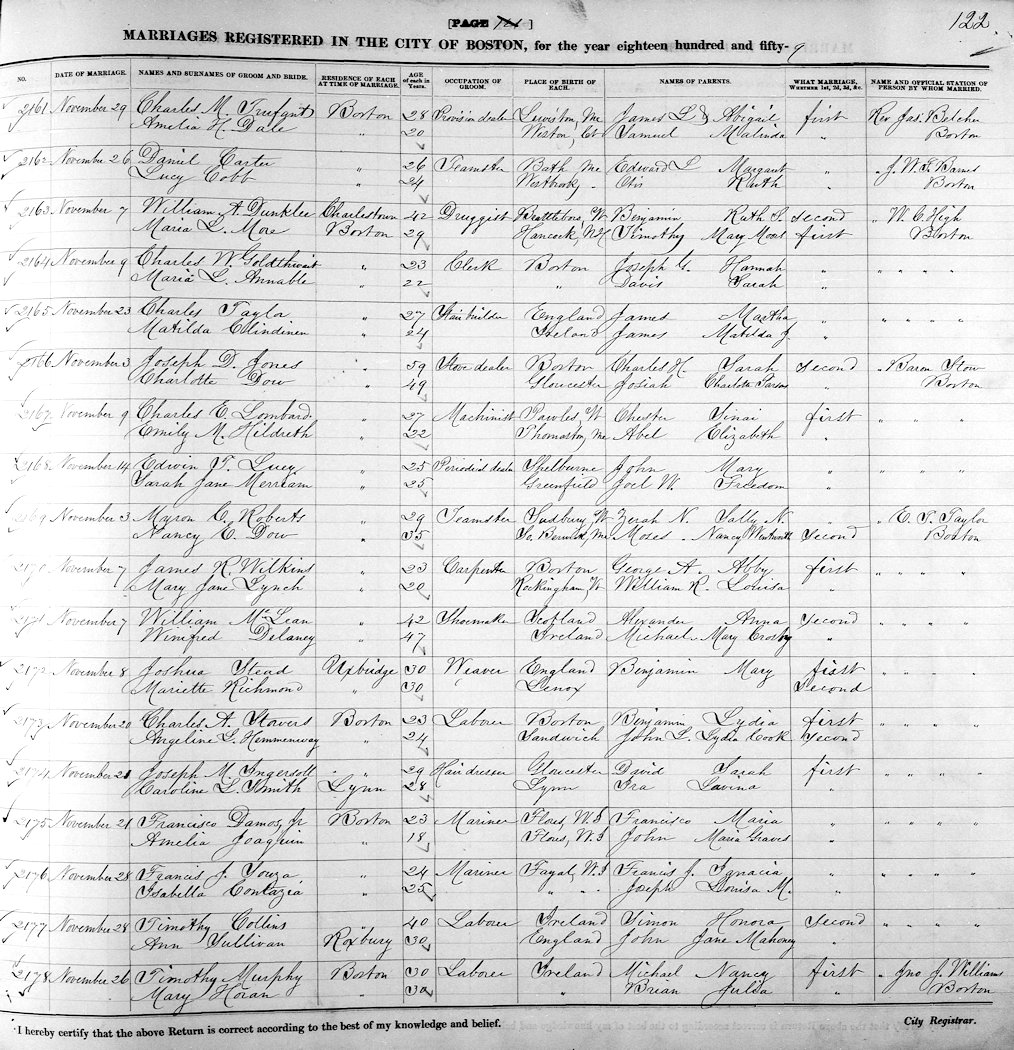 [PAGE 121 ]
122
MARRIAGES REGISTERED IN THE CITY OF BOSTON, for the year eighteen hundred and fifty-9
NO. DATE OF MARRIAGE. NAMES AND SURNAMES OF GROOM AND BRIDE. RESIDENCE OF EACH AT TIME OF MARRIAGE. AGE of each in Years. OCCUPATION OF GROOM. PLACE OF BIRTH OF EACH. NAMES OF PARENTS. WHAT MARRIAGE, WHETHER 1st, 2d, 3d, &c. NAME AND OFFICIAL STATION OF PERSON BY WHOM MARRIED.
2161 November 29 Charles M. Trufant Boston 28 Provision dealer Lewiston, Me James L & Abigail first Rev. Jas. Belcher
Amelia H. Dale " 20 Weston, Samuel Malinda " Boston
2162 November 26 Daniel Carter " 26 Teamster Bath, Me Edward L Margaret " " J. W. F. Barnes
Lucy Cobb " 24 Westbrook, " Otis Ruth " Boston
2163 November 7 William A. Dunklee Charlestown 42 Druggist Brattleboro, Vt Benjamin Ruth S. second " W. C. High
Maria L. More Boston 29 Hancock, N.H Timothy Mary Moses first Boston
2164 November 9 Charles W. Goldthwait " 23 Clerk Boston Joseph G. Hannah " " " " "
Maria L. Annable " 22 " Davis Sarah "
2165 November 23 Charles Taylor " 27 Stair builder England James Martha " " " " "
Matilda Clindinen " 24 Ireland James Matilda J. "
2166 November 3 Joseph D. Jones " 59 Stove dealer Boston Charles H. Sarah second " Baron Stow
Charlotte Dow " 49 Gloucester Josiah Charlotte Parsons " Boston
2167 November 9 Charles E. Lombard " 27 Machinist Pawles Vt Chester Sinai first " " "
Emily M. Hildreth " 22 Thomaston, Me Abel Elizabeth "
2168 November 14 Edwin F. Lucy " 25 Periodical dealer Shelburne John Mary " " " "
Sarah Jane Merriam " 25 Greenfield Joel W. Freedom "
2169 November 3 Myron C. Roberts " 29 Teamster Sudbury, Vt Zerah N. Sally N. " " E. T. Taylor
Nancy E. Dow " 35 So. Berwick, Me Moses Nancy Wentworth second Boston
2170 November 7 James R Wilkins " 23 Carpenter Boston George A. Abby first " " " "
Mary Jane Lynch " 20 Rockingham, Vt William R. Louisa "
2171 November 7 William McLean " 42 Shoemaker Scotland Alexander Anna second " " " "
Winifred Delaney " 47 Ireland Michael Mary Crosby "
2172 November 8 Joshua Stead Uxbridge 30 Weaver England Benjamin Mary first " " " "
Mariette Richmond " 30 Lenox second
2173 November 20 Charles A. Stowers Boston 23 Laborer Boston Benjamin Lydia first " " " "
Angeline L. Hemmenway " 24 Sandwich John L. Lydia Cook second
2174 November 21 Joseph M. Ingersoll " 29 Hair dresser Gloucester David Sarah first " " " "
Caroline L Smith Lynn 28 Lynn Ira Lavina "
2175 November 21 Francisco Damos, Jr Boston 23 Mariner Flores, W.I Francisco Maria " " " " "
Amelia Joaquin " 18 Flores, W.I John Maria Graves "
2176 November 28 Francis J. Souza " 24 Mariner Fayal, W.I Francis J. Ignacia " " " " "
Isabella Contazia " 25 " " " Joseph Louisa M. "
2177 November 28 Timothy Collins " 40 Laborer Ireland Simon Honora second " " " "
Ann Sullivan Roxbury 30 England John Jane Mahoney "
2178 November 26 Timothy Murphy Boston 30 Laborer Ireland Michael Nancy first " Jno J. Williams
Mary Horan " 30 " Brian Julia " Boston
I hereby certify that the above Return is correct according to the best of my knowledge and belief. City Registrar.